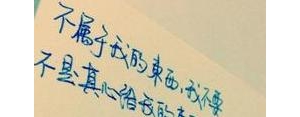 不属于我的東西，我不要
不是真心給我的東